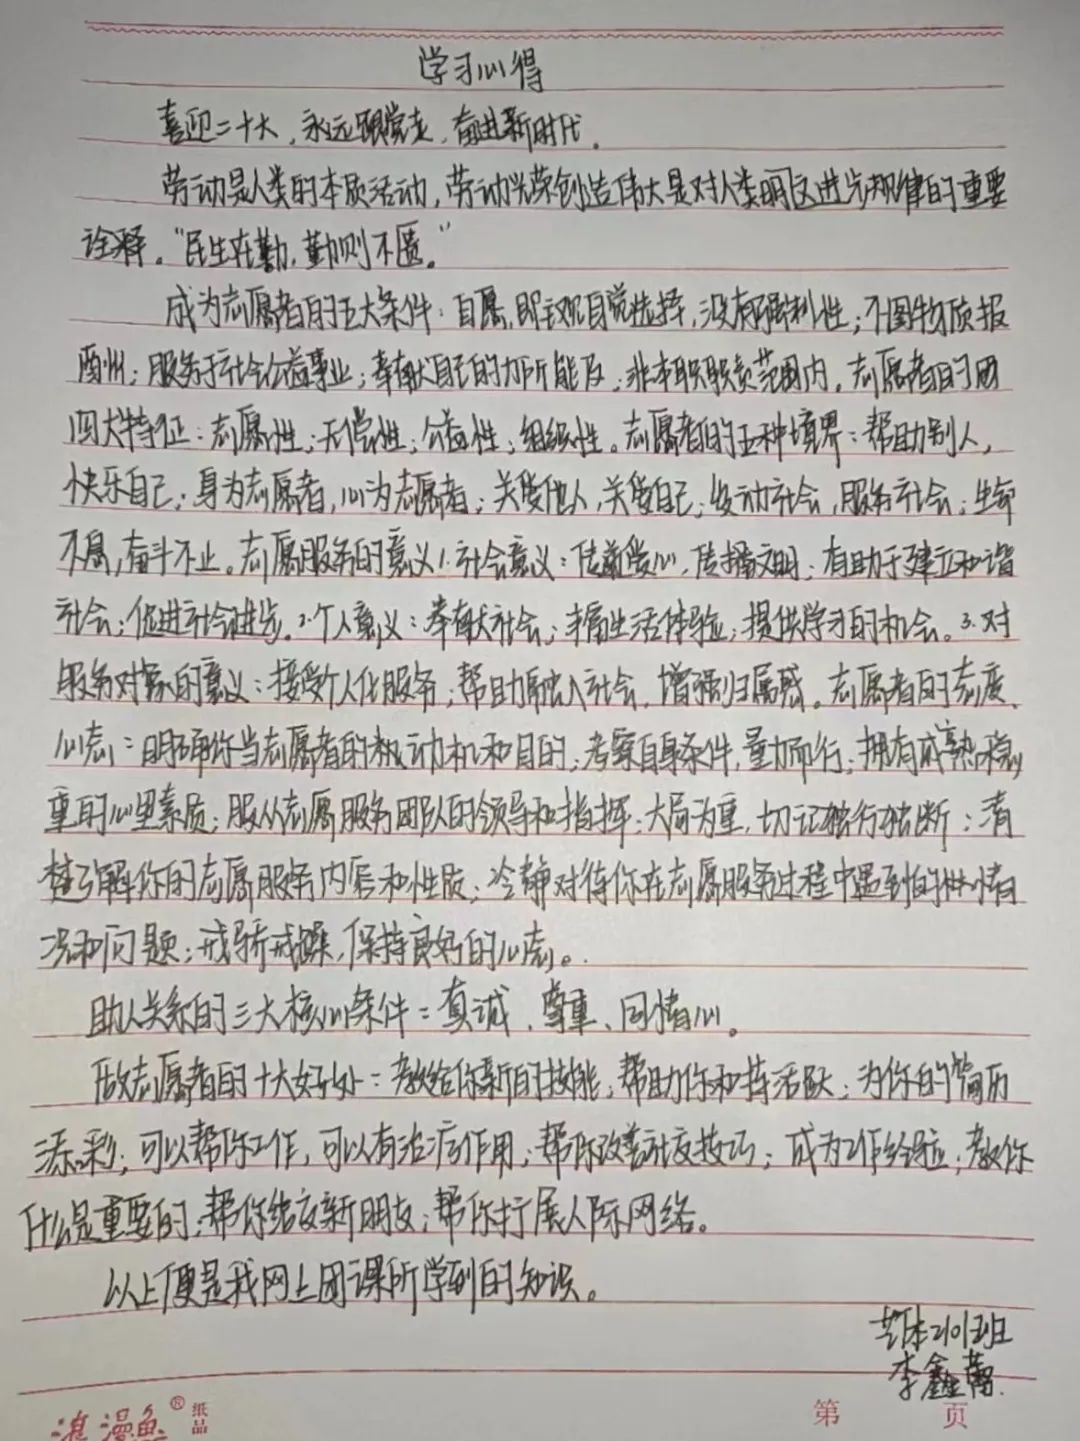 学习心得
喜迎二十大，永远跟党走，奋进新时代。
劳动是人类的本质活动，劳动光荣创造伟大是对人类明文进步规律的重要
诠释。“民生在勤，勤则不匮。”
成为志愿者的五大条件：自愿，即主观自觉选择，没有强制性；不图物质报
酬州；服务于社会公益事业；奉献自己的力所能及；非本职职责范围内。志愿者的四
四大特征：志愿性；无偿性；公益性；组织性。志愿者的五种境界：帮助别人，
快乐自己；身为志愿者，心为志愿者；关爱他人，关爱自己；发动社会，服务社会；生命
不息，奋斗不止。志愿服务的意义1.社会意义：传递爱心，传播文明；有助于建立和谐
社会；促进社会进步。2.个人意义：奉献社会；丰富生活体验；提供学习的机会。3.对
服务对象的意义：接受个人化服务；帮助融入社会，增强归属感。志愿者的态度、
心态：明确你当志愿者的动机和目的；考察自身条件，量力而行；拥有成熟稳
重的心里素质；服从志愿服务团队的领导和指挥；大局为重，切记独行独断；清
楚了解你的志愿服务内容和性质；冷静对待你在志愿服务过程中遇到的情
况和问题；戒骄戒躁，保持良好的心态。
助人关系的三大核心条件：真诚、尊重、同情心。
做志愿者的十大好处：教给你新的技能；帮助你和持活跃；为你的简历
添彩；可以帮你工作，可以有治疗作用；帮你改善社交技巧；成为工作经验；教你
什么是重要的；帮你结交新朋友；帮你扩展人际网络。
以上便是我网上团课所学到的知识。
艺本2101班
李鑫
浪漫鱼®纸品
第 页